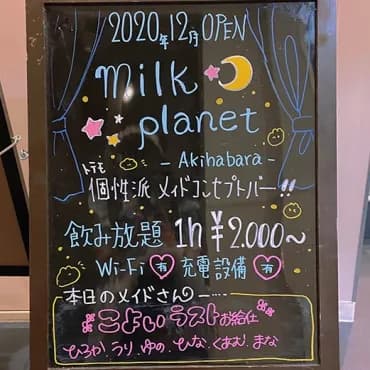 2020年12月OPEN
milk
planet
- Akihabara -
トテモ
個性派 メイドコンセプトバー!!
飲み放題 1h ¥2.000～
Wi-Fi 有 充電設備 有
本日のメイドさん
こよい ラストお給仕
ひろか.うり.ゆの.ひな.くあむ.まな